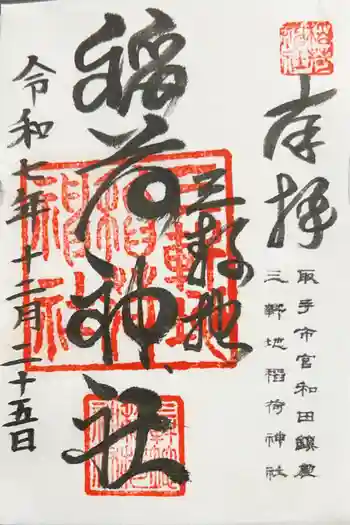 奉拝
取手市宮和田鎮座
三軒地稲荷神社
三軒地
稲荷神社
令和七年十二月二十五日